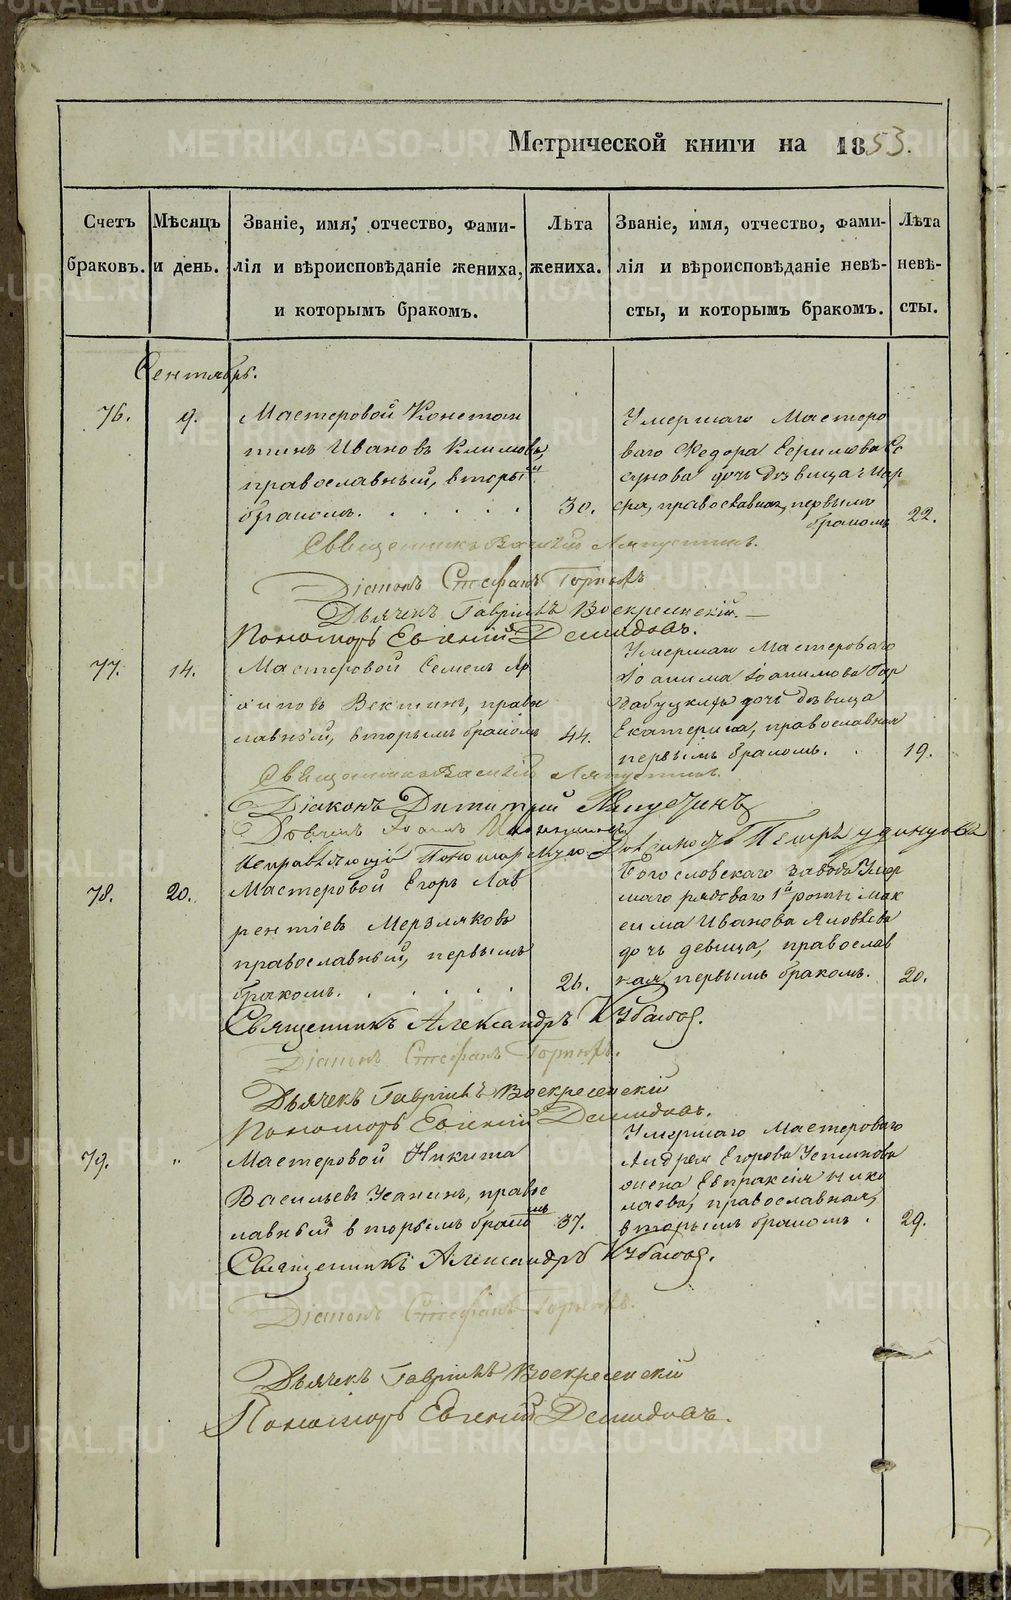 Метрической книги на 1853.
Счетъ браковъ.
Мѣсяцъ и день.
Званіе, имя, отчество, фами-
лія и вѣроисповѣданіе жениха,
и которымъ бракомъ.
Лѣта жениха.
Званіе, имя, отчество, фами-
лія и вѣроисповѣданіе невѣ-
сты, и которымъ бракомъ.
Лѣта невѣ-
сты.
Сентябрь.
76. 9.
Мастеровой Констан
тинъ Ивановъ Климовъ,
православный, вторымъ
бракомъ. 30.
Умершаго Мастеро
ваго Федора
дочь дѣвица
православная, первымъ
бракомъ 22.
Священникъ Василій Ляпустинъ.
Діаконъ Стефанъ
Дьячекъ Гавріилъ Воскресенскій.
Пономарь Евгеній Демидовъ.
77. 14.
Мастеровой Семенъ
православный, вторымъ бракомъ 44.
Умершаго Мастероваго
Іоакима Іоакимова
дочь дѣвица
Екатерина, православная
первымъ бракомъ. 19.
Священникъ Василій Ляпустинъ.
Діаконъ Димитрій Ляпустинъ
Дьячекъ Іоаннъ
78. 20.
Мастеровой Егоръ Лав
рентіевъ Мерзляковъ
православный, первымъ
бракомъ. 26.
Богословскаго завода Умер
шаго рядоваго 1й роты Мак
сима Иванова Яковлева
дочь девица, православ
ная, первымъ бракомъ. 20.
Священникъ Александръ
Діаконъ Стефанъ
Дьячекъ Гавріилъ Воскресенскій
Пономарь Евгеній Демидовъ.
79. "
Мастеровой Никита
Васильевъ Усанинъ, право
славный вторымъ бракомъ 37.
Умершаго Мастероваго
Андрея Егорова Устинова
жена Евпраксія Нико
лаева, православная,
вторымъ бракомъ. 29.
Священникъ Александръ
Діаконъ Стефанъ
Дьячекъ Гавріилъ Воскресенскій
Пономарь Евгеній Демидовъ.
METRIKI.GASO-URAL.RU